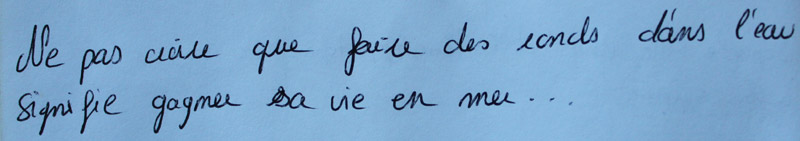 Ne pas croire que faire des ronds dans l'eau
signifie gagner sa vie en mer...